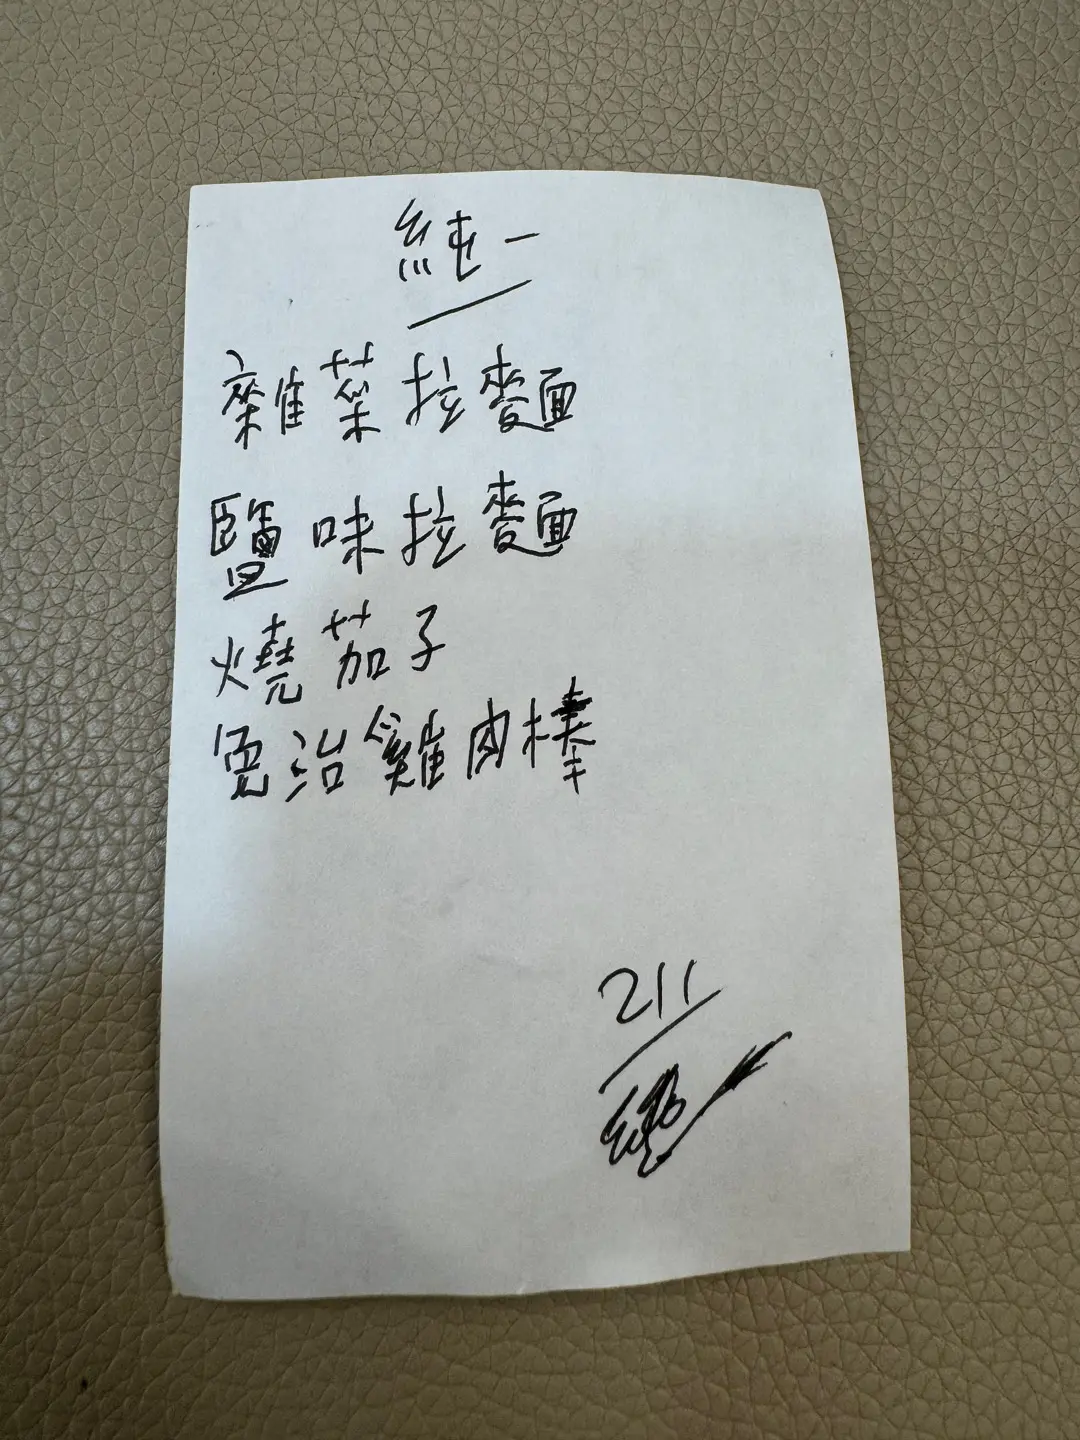 純一
雜菜拉麵
鹽味拉麵
燒茄子
免治雞肉棒
211